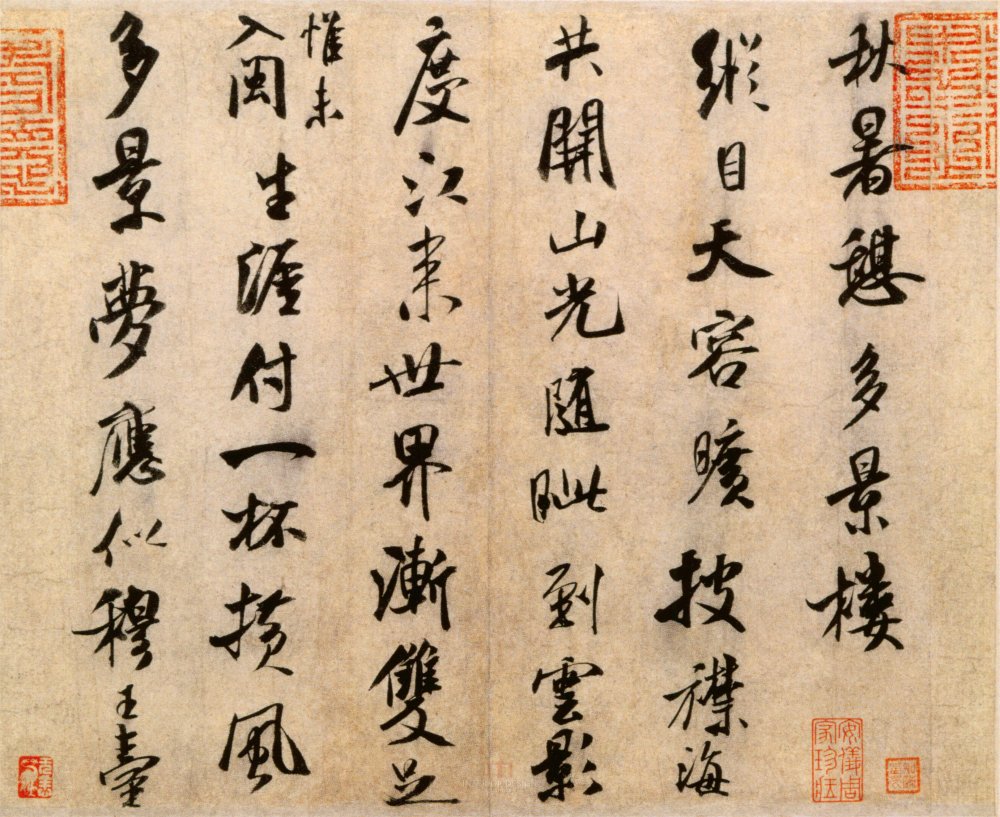 秋暑憩多景樓
縱目天容曠披襟海
共開山光隨眦到雲影
度江来世界漸雙足
惟未
入閩生涯付一杯橫風
多景夢應似穆王臺
安儀周
家珍藏